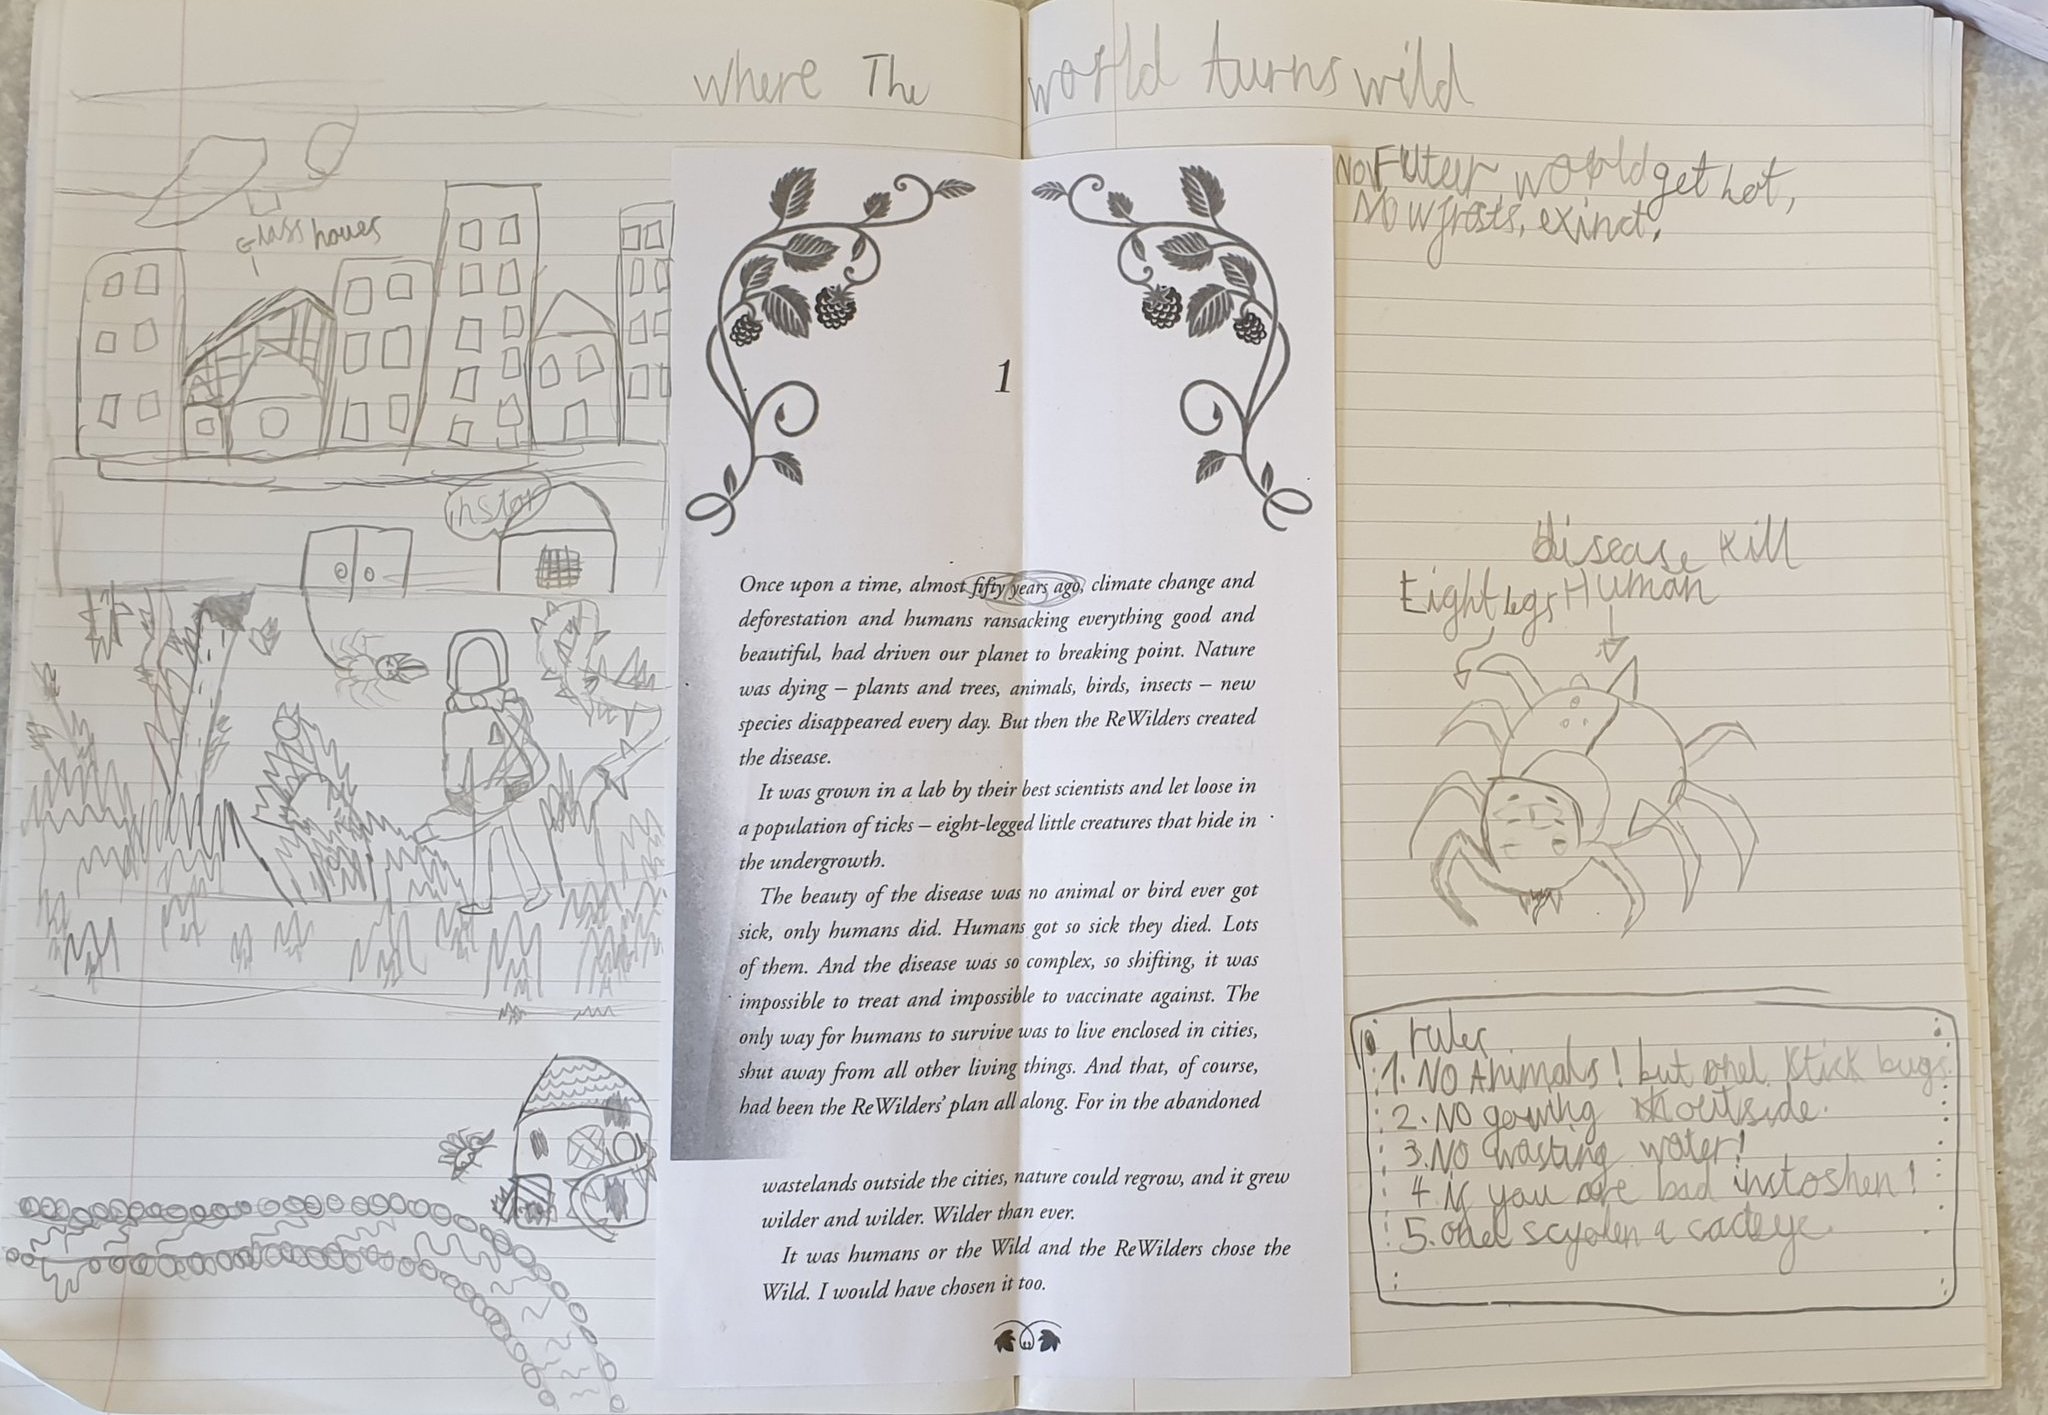 where The world turns wild
Glass houses
instor
1
Once upon a time, almost fifty years ago, climate change and
deforestation and humans ransacking everything good and
beautiful, had driven our planet to breaking point. Nature
was dying – plants and trees, animals, birds, insects – new
species disappeared every day. But then the ReWilders created
the disease.
It was grown in a lab by their best scientists and let loose in
a population of ticks – eight-legged little creatures that hide in
the undergrowth.
The beauty of the disease was no animal or bird ever got
sick, only humans did. Humans got so sick they died. Lots
of them. And the disease was so complex, so shifting, it was
impossible to treat and impossible to vaccinate against. The
only way for humans to survive was to live enclosed in cities,
shut away from all other living things. And that, of course,
had been the ReWilders' plan all along. For in the abandoned
wastelands outside the cities, nature could regrow, and it grew
wilder and wilder. Wilder than ever.
It was humans or the Wild and the ReWilders chose the
Wild. I would have chosen it too.
Futeer, world get hot,
exinct.
disease kill
Human
Eight legs
rules
1. NO Animals! but stick bugs
2. NO outside.
3. NO wasting water!
4 if you are bad instoshen!
5.